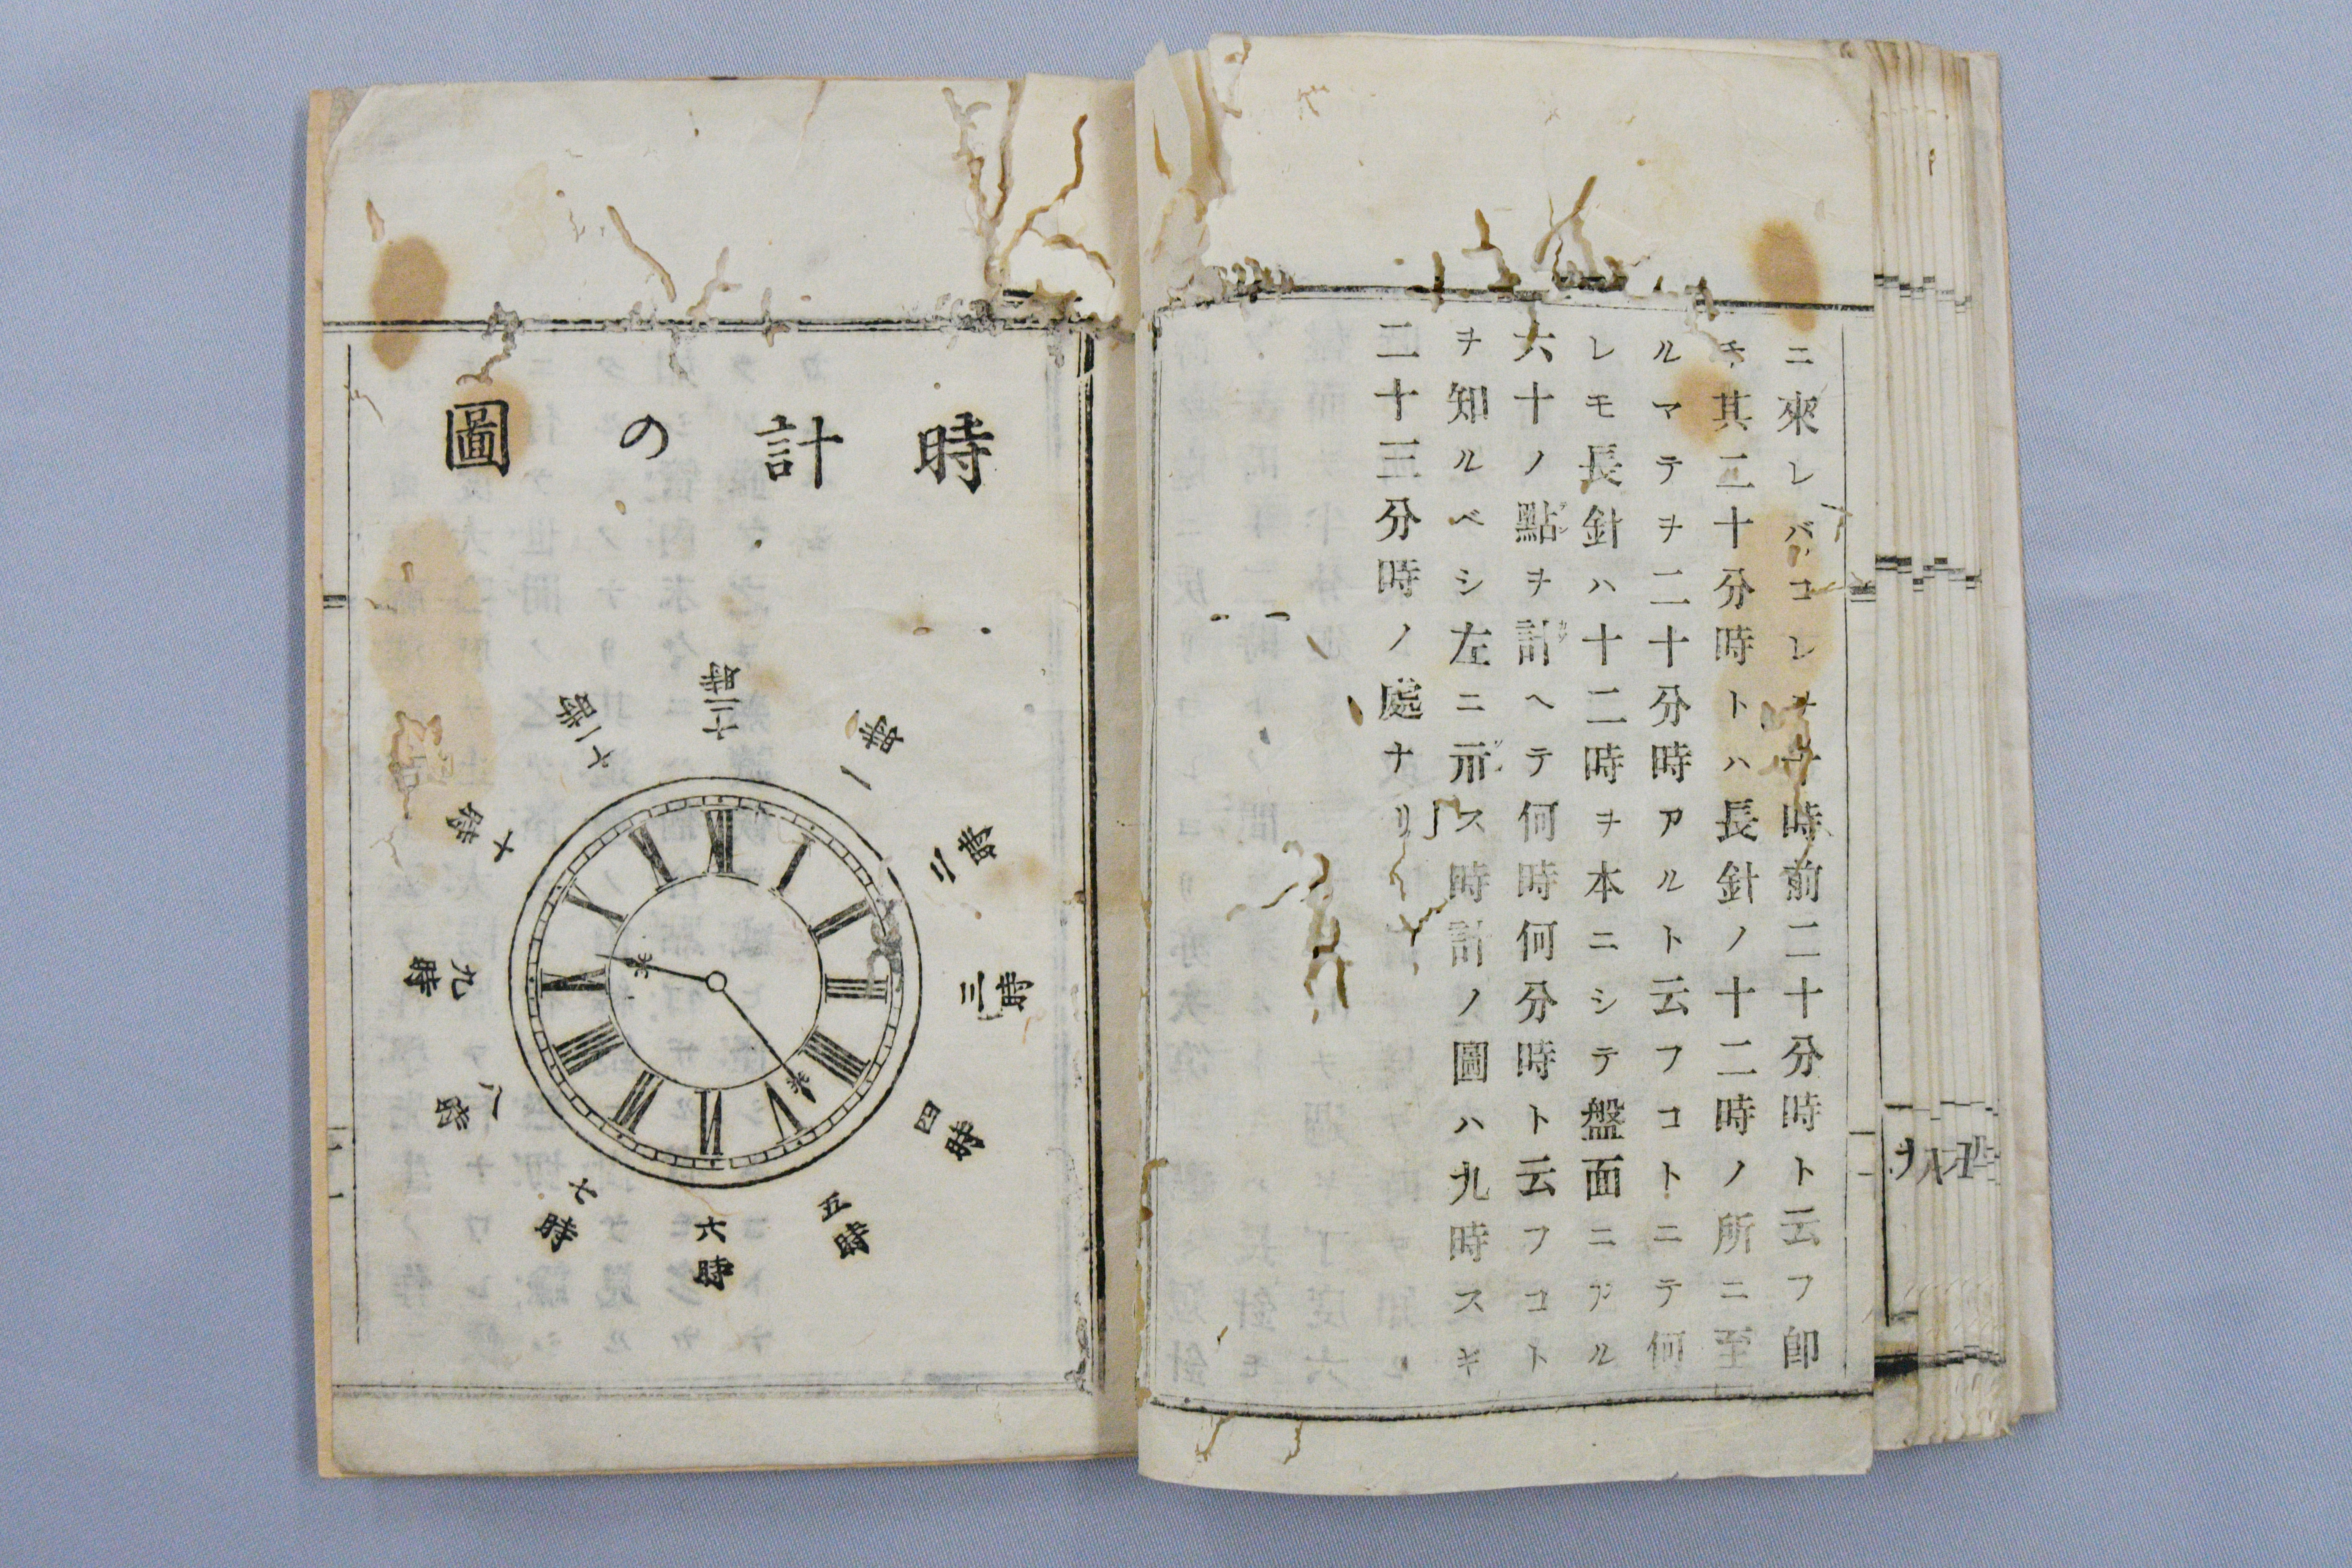 ニ來レバコレヲ十時前二十分時ト云フ卽
チ其二十分時トハ長針ノ十二時ノ所ニ至
ルマテヲ二十分時アルト云フコトニテ何
レモ長針ハ十二時ヲ本ニシテ盤面ニアル
六十ノ點ヲ計ヘテ何時何分時ト云フコト
ヲ知ルベシ左ニ示ス時計ノ圖ハ九時スギ
二十三分時ノ處ナリ
時計の圖
十二時
一時
二時
三時
四時
五時
六時
七時
八時
九時
十時
十一時
XII
I
II
III
IIII
V
VI
VII
VIII
IX
X
XI